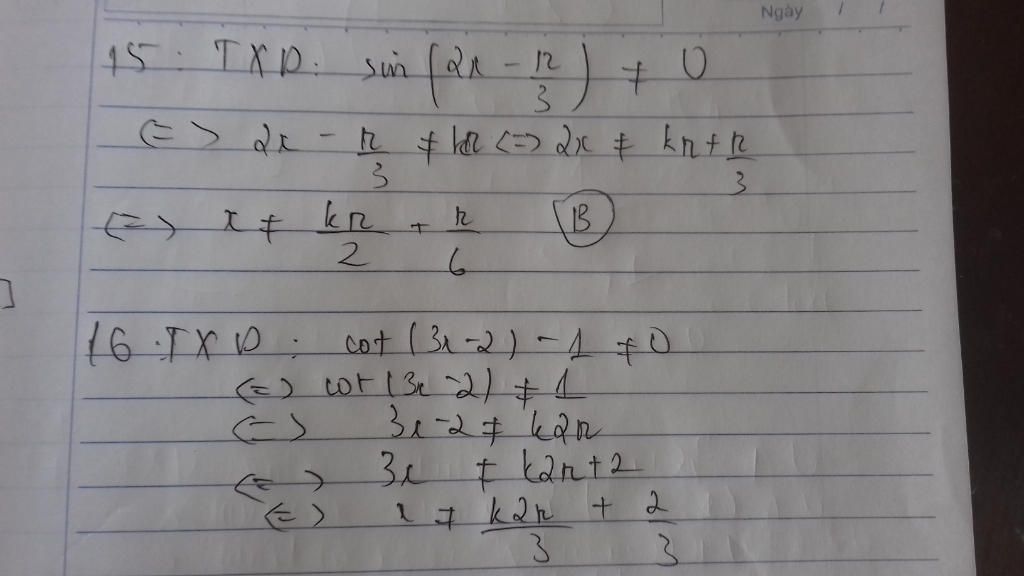 Ngày / /
15 : TXD : sin(2x - π/3) ≠ 0
<=> 2x - π/3 ≠ kπ <=> 2x ≠ kπ + π/3
<=> x ≠ kπ/2 + π/6 (B)
16 : TXD : cot(3x-2) - 1 ≠ 0
<=> cot(3x-2) ≠ 1
<=> 3x-2 ≠ k2π
<=> 3x ≠ k2π+2
<=> x ≠ k2π/3 + 2/3